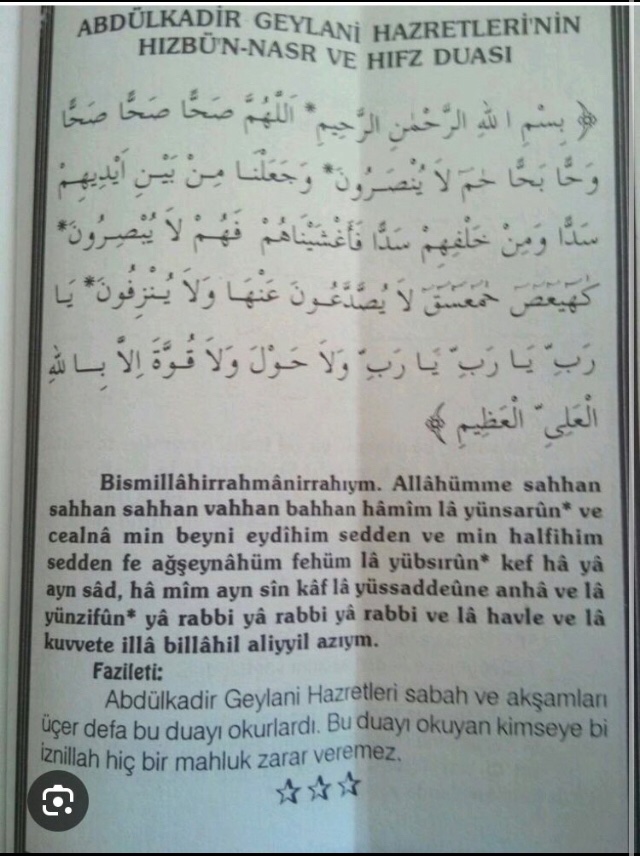 ABDÜLKADİR GEYLANİ HAZRETLERİ'NİN
HIZBÜ'N-NASR VE HIFZ DUASI
﴿ بِسْمِ اللهِ الرَّحْمٰنِ الرَّحِيمِ * اَللّٰهُمَّ صَحًّا صَحًّا صَحًّا
وَحًّا بَحًّا حٰمٓ لاَ يُنْصَرُونَ * وَجَعَلْنَا مِنْ بَيْنِ اَيْدِيهِمْ
سَدًّا وَمِنْ خَلْفِهِمْ سَدًّا فَأَغْشَيْنَاهُمْ فَهُمْ لاَ يُبْصِرُونَ *
كٓهٰيٰعٓصٓ حٰمٓعٓسٓقٓ لاَ يُصَّدَّعُونَ عَنْهَا وَلاَ يُنْزِفُونَ * يَا
رَبِّ يَا رَبِّ يَا رَبِّ وَلاَ حَوْلَ وَلاَ قُوَّةَ اِلاَّ بِاللهِ
الْعَلِيِّ الْعَظِيمِ ﴾
Bismillâhirrahmânirrahıym. Allâhümme sahhan
sahhan sahhan vahhan bahhan hâmîm lâ yünsarûn* ve
cealnâ min beyni eydîhim sedden ve min halfihim
sedden fe ağşeynâhüm fehüm lâ yübsırûn* kef hâ yâ
ayn sâd, hâ mîm ayn sîn kâf lâ yüssaddeûne anhâ ve lâ
yünzifûn* yâ rabbi yâ rabbi yâ rabbi ve lâ havle ve lâ
kuvvete illâ billâhil aliyyil azıym.
Fazileti:
Abdülkadir Geylani Hazretleri sabah ve akşamları
üçer defa bu duayı okurlardı. Bu duayı okuyan kimseye bi
iznillah hiç bir mahluk zarar veremez.